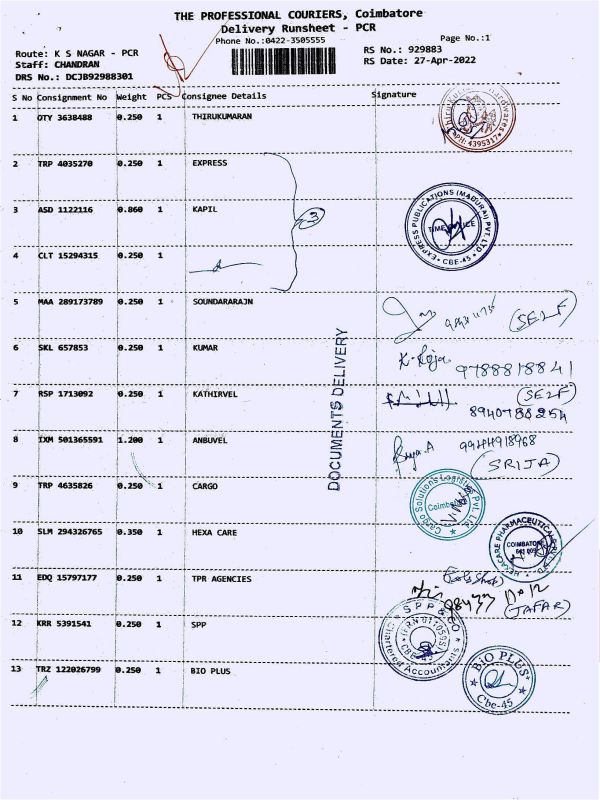 THE PROFESSIONAL COURIERS, Coimbatore
Delivery Runsheet - PCR
Phone No.:0422-3505555
Page No.:1
Route: K S NAGAR - PCR
RS No.: 929883
Staff: CHANDRAN
RS Date: 27-Apr-2022
DRS No.: DCJB92988301
S No Consignment No Weight PCS Consignee Details Signature
1 OTY 3638488 0.250 1 THIRUKUMARAN
4395317
2 TRP 4035270 0.250 1 EXPRESS
3 ASD 1122116 0.860 1 KAPIL
3
EXPRESS PUBLICATIONS (MADURAI) PVT. LTD
CBE-45
4 CLT 15294315 0.250 1
5 MAA 289173789 0.250 1 SOUNDARARAJN
(SELF)
6 SKL 657853 0.250 1 KUMAR
K. Roja 9788818841
7 RSP 1713092 0.250 1 KATHIRVEL
(SELF)
8940788254
8 IXM 501365591 1.200 1 ANBUVEL
9944918968
(SRIJA)
DOCUMENTS DELIVERY
9 TRP 4635826 0.250 1 CARGO
Cargo Solutions Logistics Pvt. Ltd.
Coimbatore
10 SLM 294326765 0.350 1 HEXA CARE
HEXACARE PHARMACEUTICAL
COIMBATORE
11 EDQ 15797177 0.250 1 TPR AGENCIES
(JAFAR)
12 KRR 5391541 0.250 1 SPP
SPP & CO
Chartered Accountants
13 TRZ 122026799 0.250 1 BIO PLUS
BIO PLUS
Cbe-45